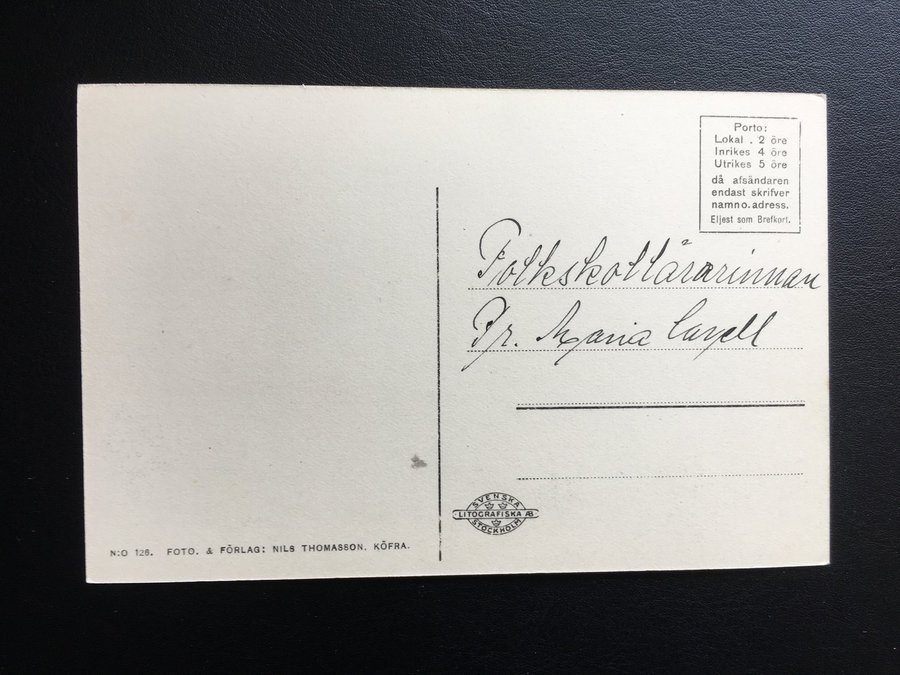 Porto:
Lokal . 2 öre
Inrikes 4 öre
Utrikes 5 öre
då afsändaren
endast skrifver
namn o. adress.
Eljest som Brefkort.
Folkskollärarinnan
Maria
SVENSKA
LITOGRAFISKA AB.
STOCKHOLM
N:O 126. FOTO. & FÖRLAG: NILS THOMASSON, KÖFRA.